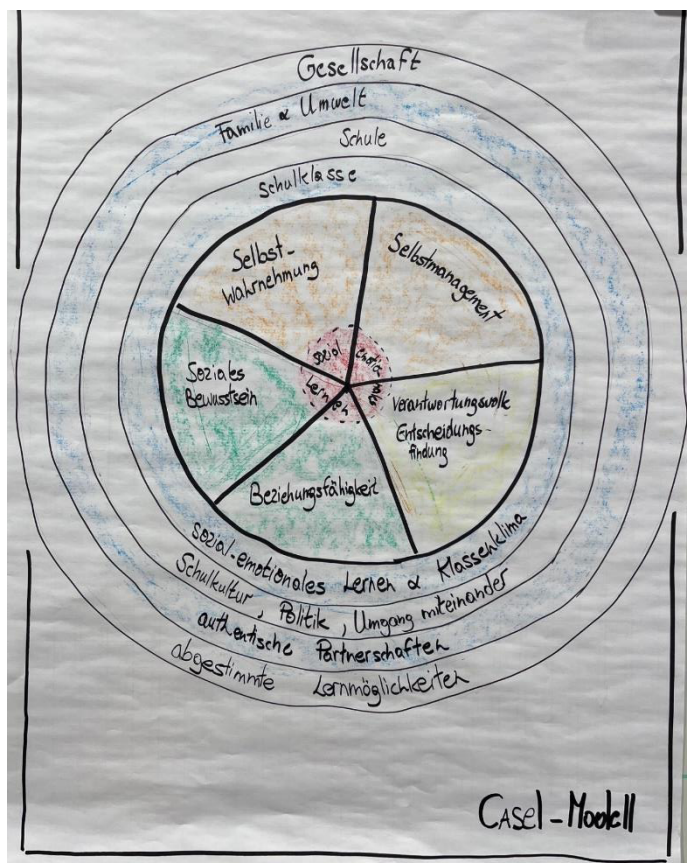 Gesellschaft
Familie & Umwelt
Schule
Schulklasse
Selbst-
Wahrnehmung
Selbstmanagement
sozial emotionales
Lernen
Soziales
Bewusstsein
Verantwortungsvolle
Entscheidungs-
findung
Beziehungsfähigkeit
sozial-emotionales Lernen & Klassenklima
Schulkultur, Politik, Umgang miteinander
authentische Partnerschaften
abgestimmte Lernmöglichkeiten
Casel-Modell